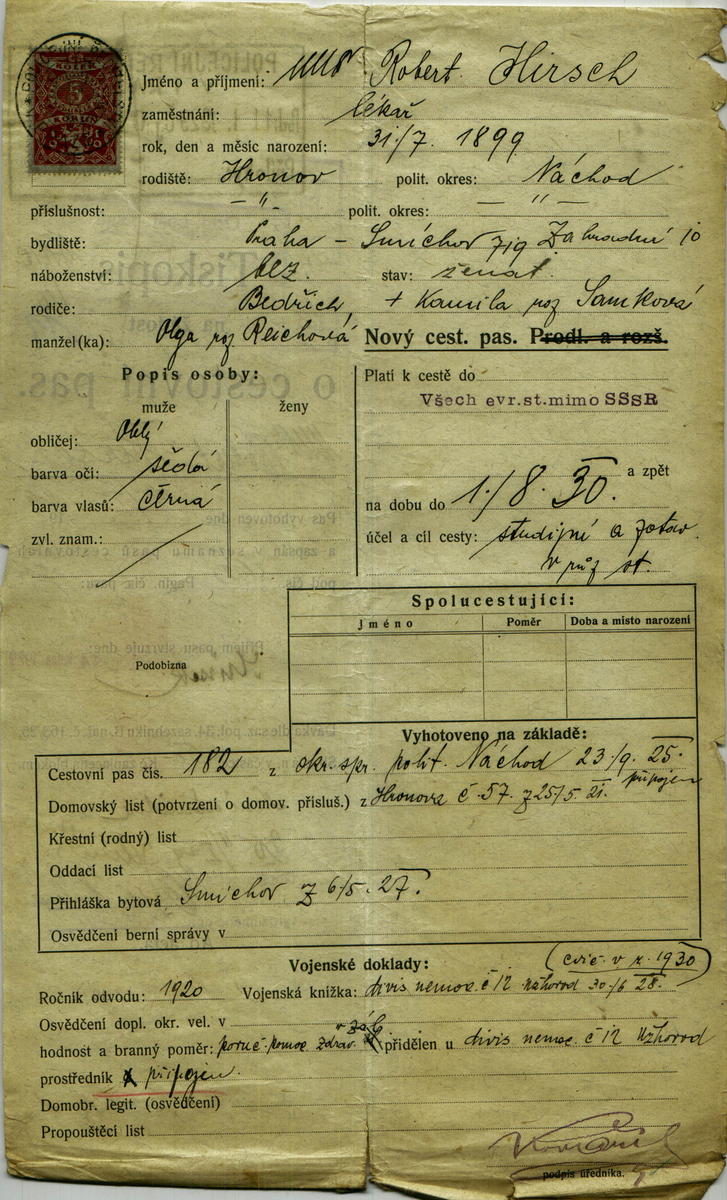 5
KORUN
Jméno a příjmení: MUDr Robert Hirsch
zaměstnání: lékař
rok, den a měsíc narození: 31/7. 1899
rodiště: Hronov polit. okres: Náchod
příslušnost: — " — polit. okres: — " —
bydliště: Praha – Smíchov 719 Zahradní 10
náboženství: bez. stav: ženat.
rodiče: Bedřich, + Kamila roz Samková
manžel(ka): Olga roz Reichová
Nový cest. pas. Prodl. a rozš.
Popis osoby:
muže ženy
obličej: Oblý
barva očí: šedá
barva vlasů: černá
zvl. znam.:
Platí k cestě do
Všech evr.st.mimo SSSR
a zpět
na dobu do 1./8. 30.
účel a cíl cesty: studijní a zotav.
v růz st.
Spolucestující:
Jméno Poměr Doba a místo narození
Podobizna
Vyhotoveno na základě:
Cestovní pas čís. 182 z okr. spr. polit. Náchod 23/9. 25.
Domovský list (potvrzení o domov. přísluš.) z Hronova č 57. z 25/5. 21. připojen
Křestní (rodný) list
Oddací list
Přihláška bytová Smíchov z 6/5. 27.
Osvědčení berní správy v
Vojenské doklady: (cvič. v r. 1930)
Ročník odvodu: 1920 Vojenská knížka: divis nemoc. č 12 Užhorod 30/6 28.
Osvědčení dopl. okr. vel. v
hodnost a branný poměr: poruč. pomoc. zdrav. v zál. přidělen u divis nemoc. č 12 Užhorod
prostředník připojen.
Domobr. legit. (osvědčení)
Propouštěcí list
podpis úředníka.